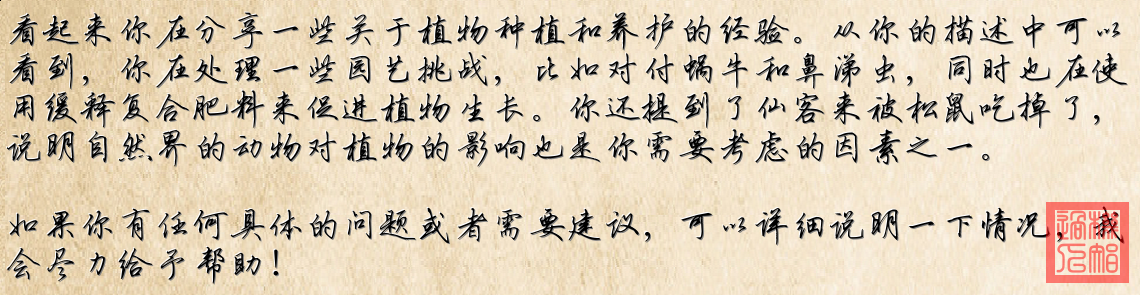 看起来你在分享一些关于植物种植和养护的经验。从你的描述中可以
看到，你在处理一些园艺挑战，比如对付蜗牛和鼻涕虫，同时也在使
用缓释复合肥料来促进植物生长。你还提到了仙客来被松鼠吃掉了，
说明自然界的动物对植物的影响也是你需要考虑的因素之一。
如果你有任何具体的问题或者需要建议，可以详细说明一下情况，我
会尽力给予帮助！